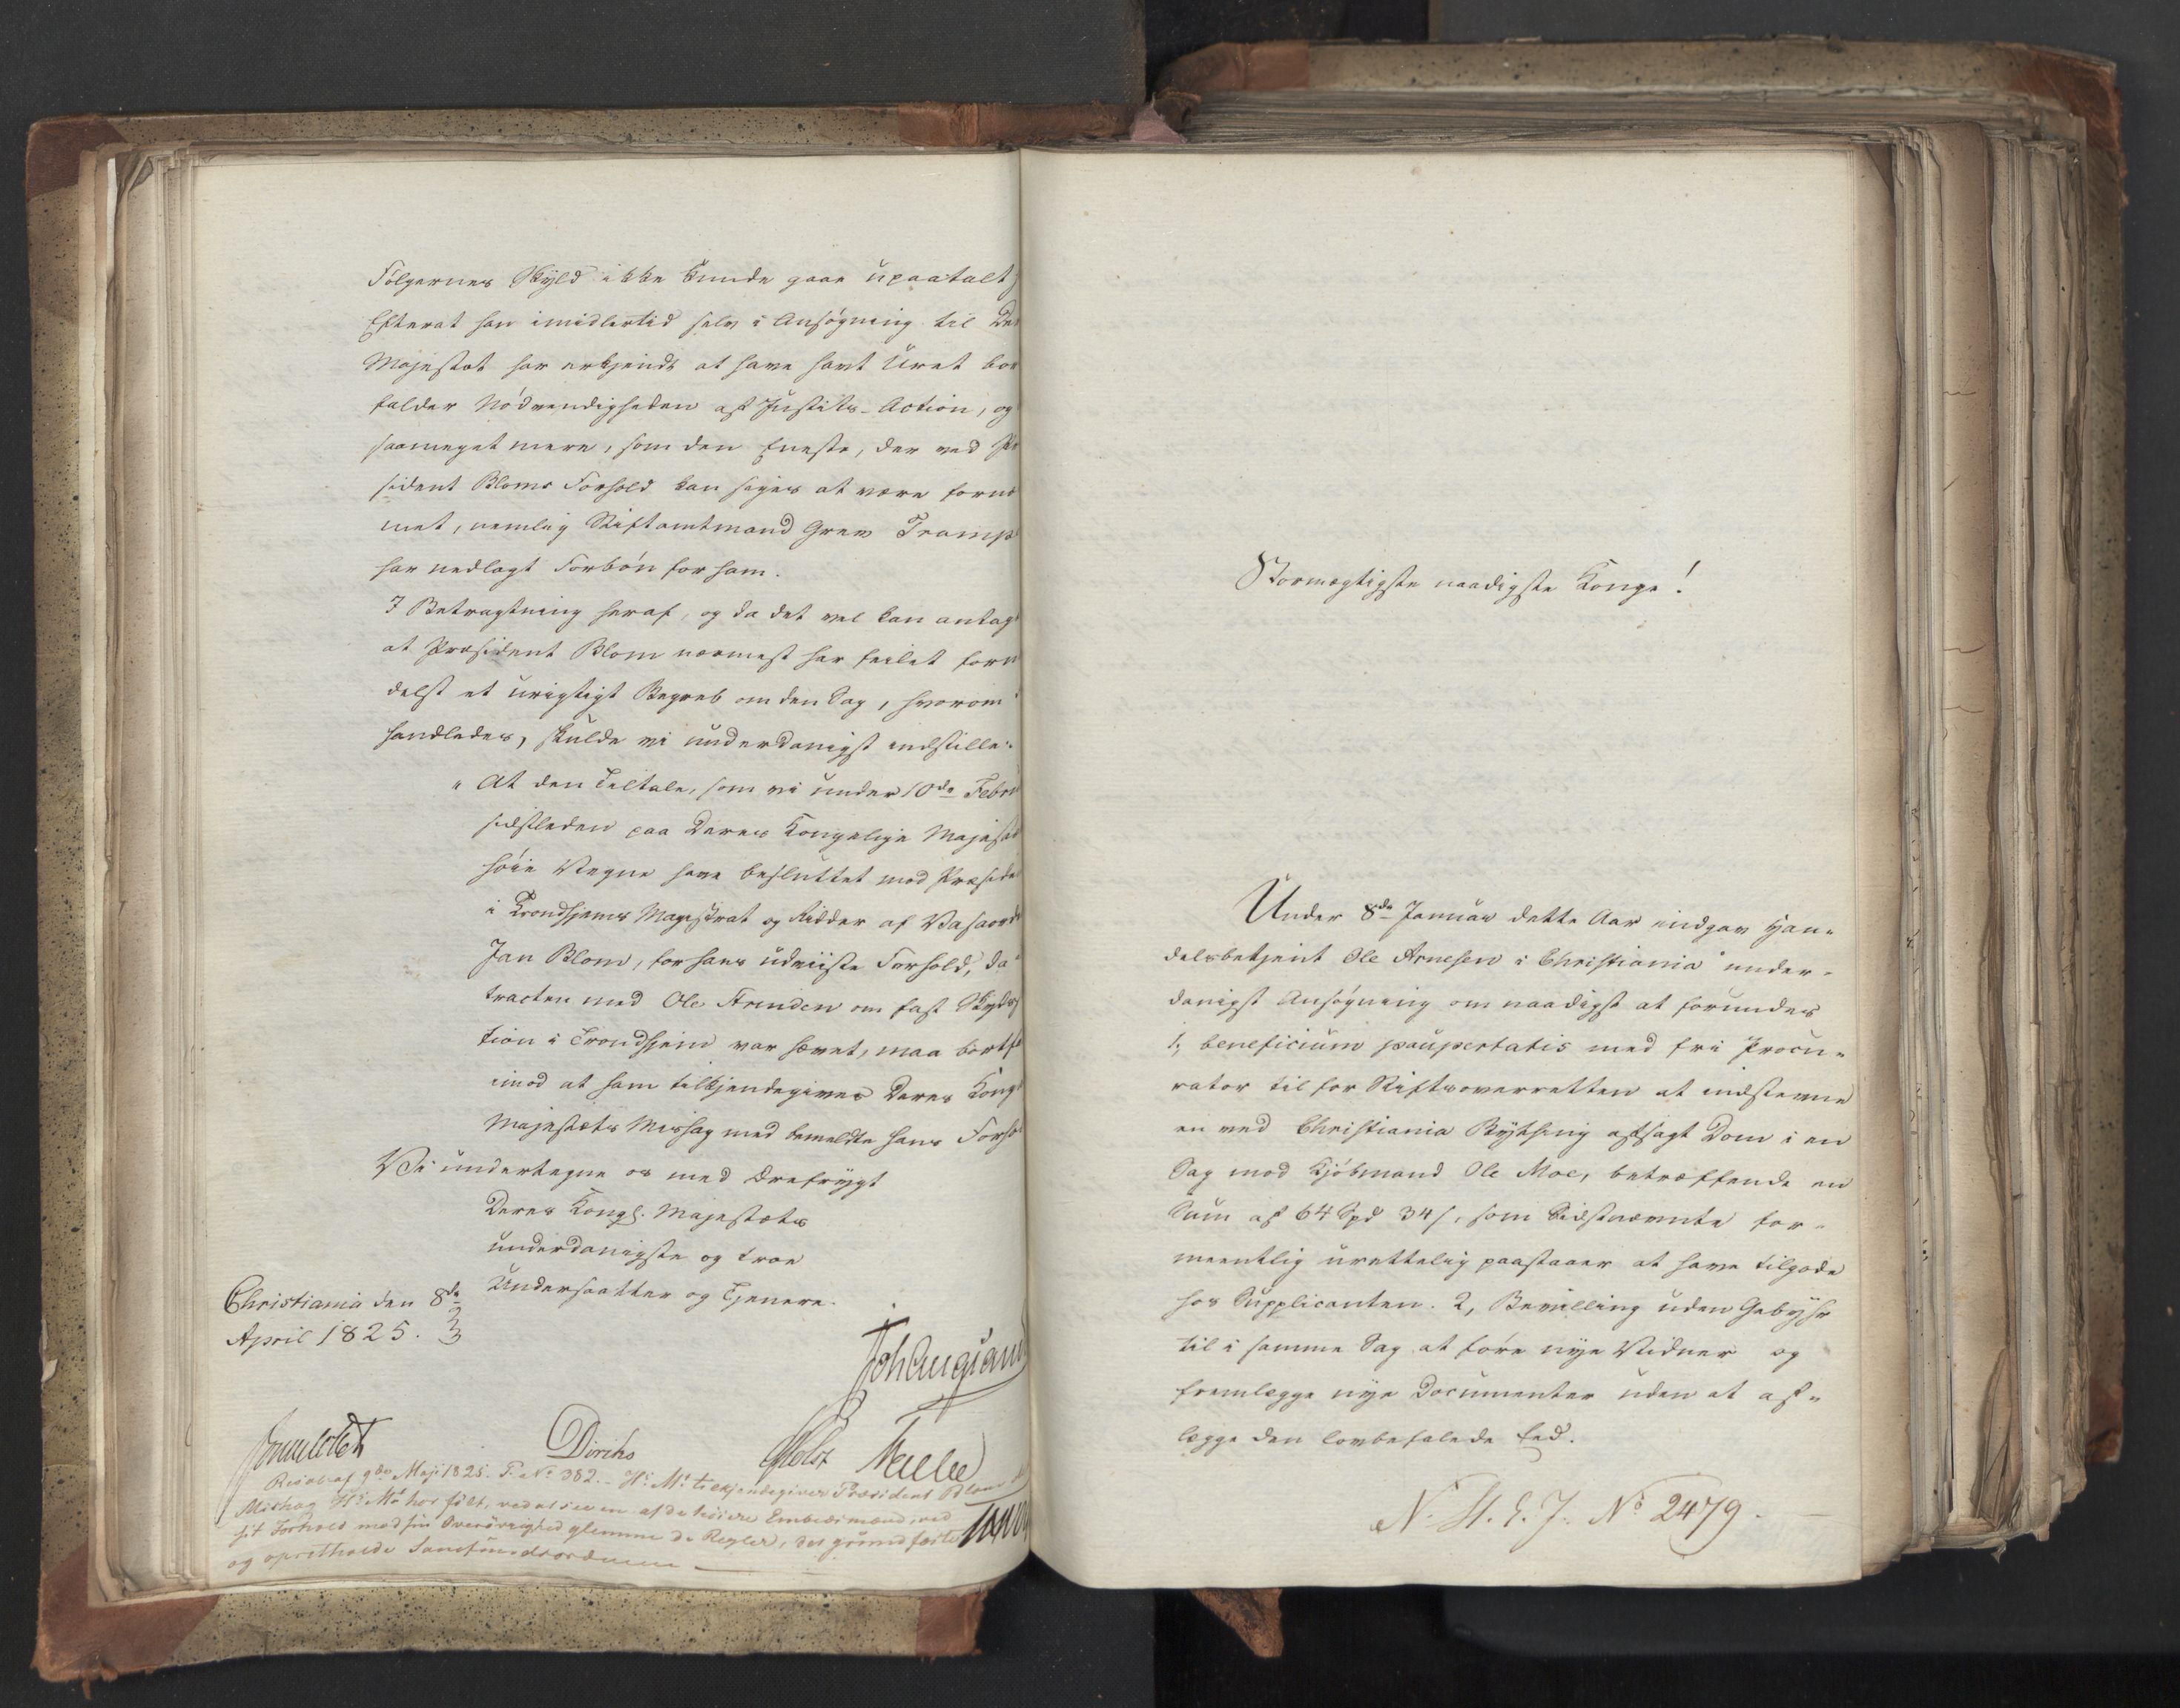 Følgernes Skyld ikke kunde gaae upaatalt;
Efterat han imidlertid selv i Ansøgning til De
Majestæt har erkjendt at have havt Uret bor
falder Nødvendigheden af Justits-Action, og
saameget mere, som den Eneste, der ved Præ
sident Bloms Forhold kan siges at være fornær
met, nemlig Stiftamtmand Grev Tramp
har nedlagt Forbøn for ham.
I Betragtning heraf, og da det vel kan antag
at Præsident Blom nærmest har feilet form
delst et urigtigt Begreb om den Sag, hvorom
handledes, skulde vi underdanigst indstille:
"At den Tiltale, som vi under 10de Febru
sidstleden paa Deres Kongelige Majestæt
høie Vegne have besluttet mod Præside
i Trondhjems Magistrat og Ridder af Vasaord
Jan Blom, for hans udviiste Forhold, da
tracten med Ole Strinden om fast Skyds
tion i Trondhjem var hævet, maa bortf
imod at ham tilkjendegives Deres Kong
Majestæts Mishag med bemeldte hans Forho
Vi undertegne os med Ærefrygt
Deres Kongl. Majestæts
underdanigste og troe
Undersaatter og Tjenere.
Christiania den 8de
April 1825.
Diriks
Holst
Resol: af 9de Maji 1825. P. No 382. H. M. tilkjendegiver Præsident Blom
Mishag H. M. har følt, ved at see en af de høiere Embedsmænd, ved
sit Forhold mod sin Overøvrighed glemme de Regler, der grundfæste
og opretholde Samfundsordenen
Stormægtigste naadigste Konge!
Under 8de Januar dette Aar indgav Han-
delsbetjent Ole Arnesen i Christiania under-
danigst Ansøgning om naadigst at forundes
1, beneficium paupertatis med fri Procu-
rator til for Stiftsoverretten at indstevne
en ved Christiania Bything afsagt Dom i en
Sag mod Kjøbmand Ole Moe, betræffende en
Sum af 64 Spd 34 s, som Sidstnævnte for-
meentlig urettelig paastaaer at have tilgode
hos Supplicanten. 2, Bevilling uden Gebyhr
til i samme Sag at føre nye Vidner og
fremlægge nye Documenter uden at af-
lægge den lovbefalede Eed.
N. H. E. J. No 2479.